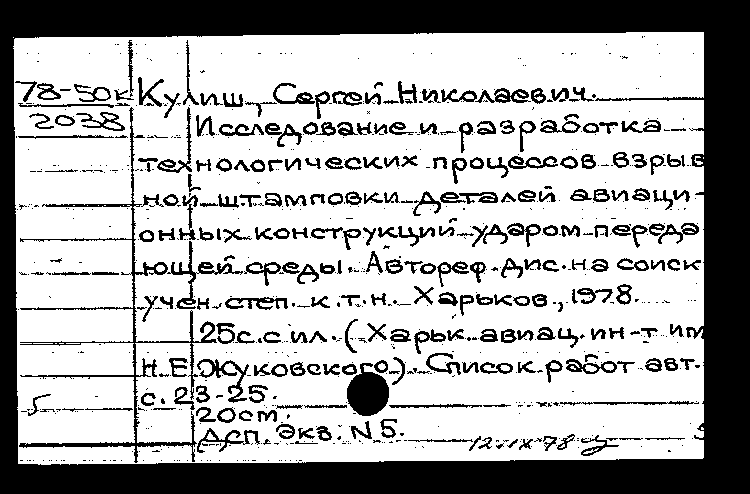 78-50к Кулиш, Сергей Николаевич.
2038 Исследование и разработка
технологических процессов взрыв
ной штамповки деталей авиаци-
онных конструкций ударом переда
ющей среды. Автореф. дис. на соиск
учен. степ. к.т.н. Харьков, 1978.
25с. с ил. (Харьк. авиац. ин-т им
Н.Е. Жуковского). Список работ авт.
с. 23-25.
5 20см.
Дсп. Экз. N5.
12.IX 78